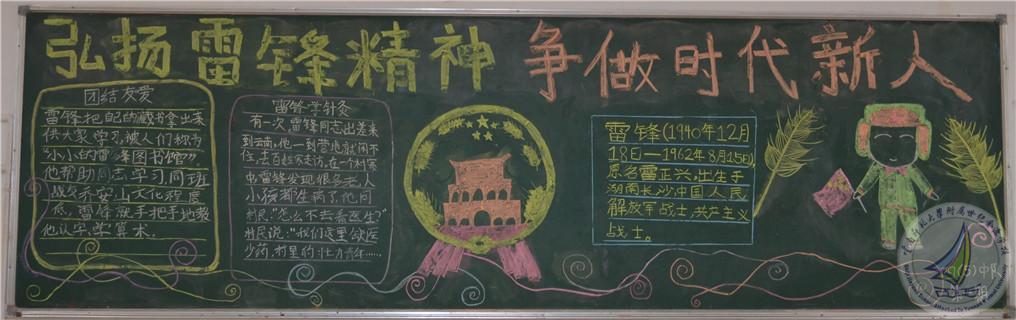 弘扬雷锋精神 争做时代新人
团结友爱
雷锋把自己的藏书拿出来
供大家学习,被人们称为
"小小的雷锋图书馆"。
他帮助同志学习同班
战友乔安山文化程度
低,雷锋就手把手地教
他认字,学算术。
雷锋学针灸
有一次,雷锋同志出差来
到云南,他一到营地就闲不
住,去百姓家走访,在一个村寨
中,雷锋发现很多老人
小孩都生病了他问
村民,"怎么不去看医生?"
村民说:"我们这里缺医
少药,村里的壮力青年……
雷锋(1940年12月
18日—1962年8月15日),
原名雷正兴,出生于
湖南长沙,中国人民
解放军战士,共产主义
战士。
(5)中队